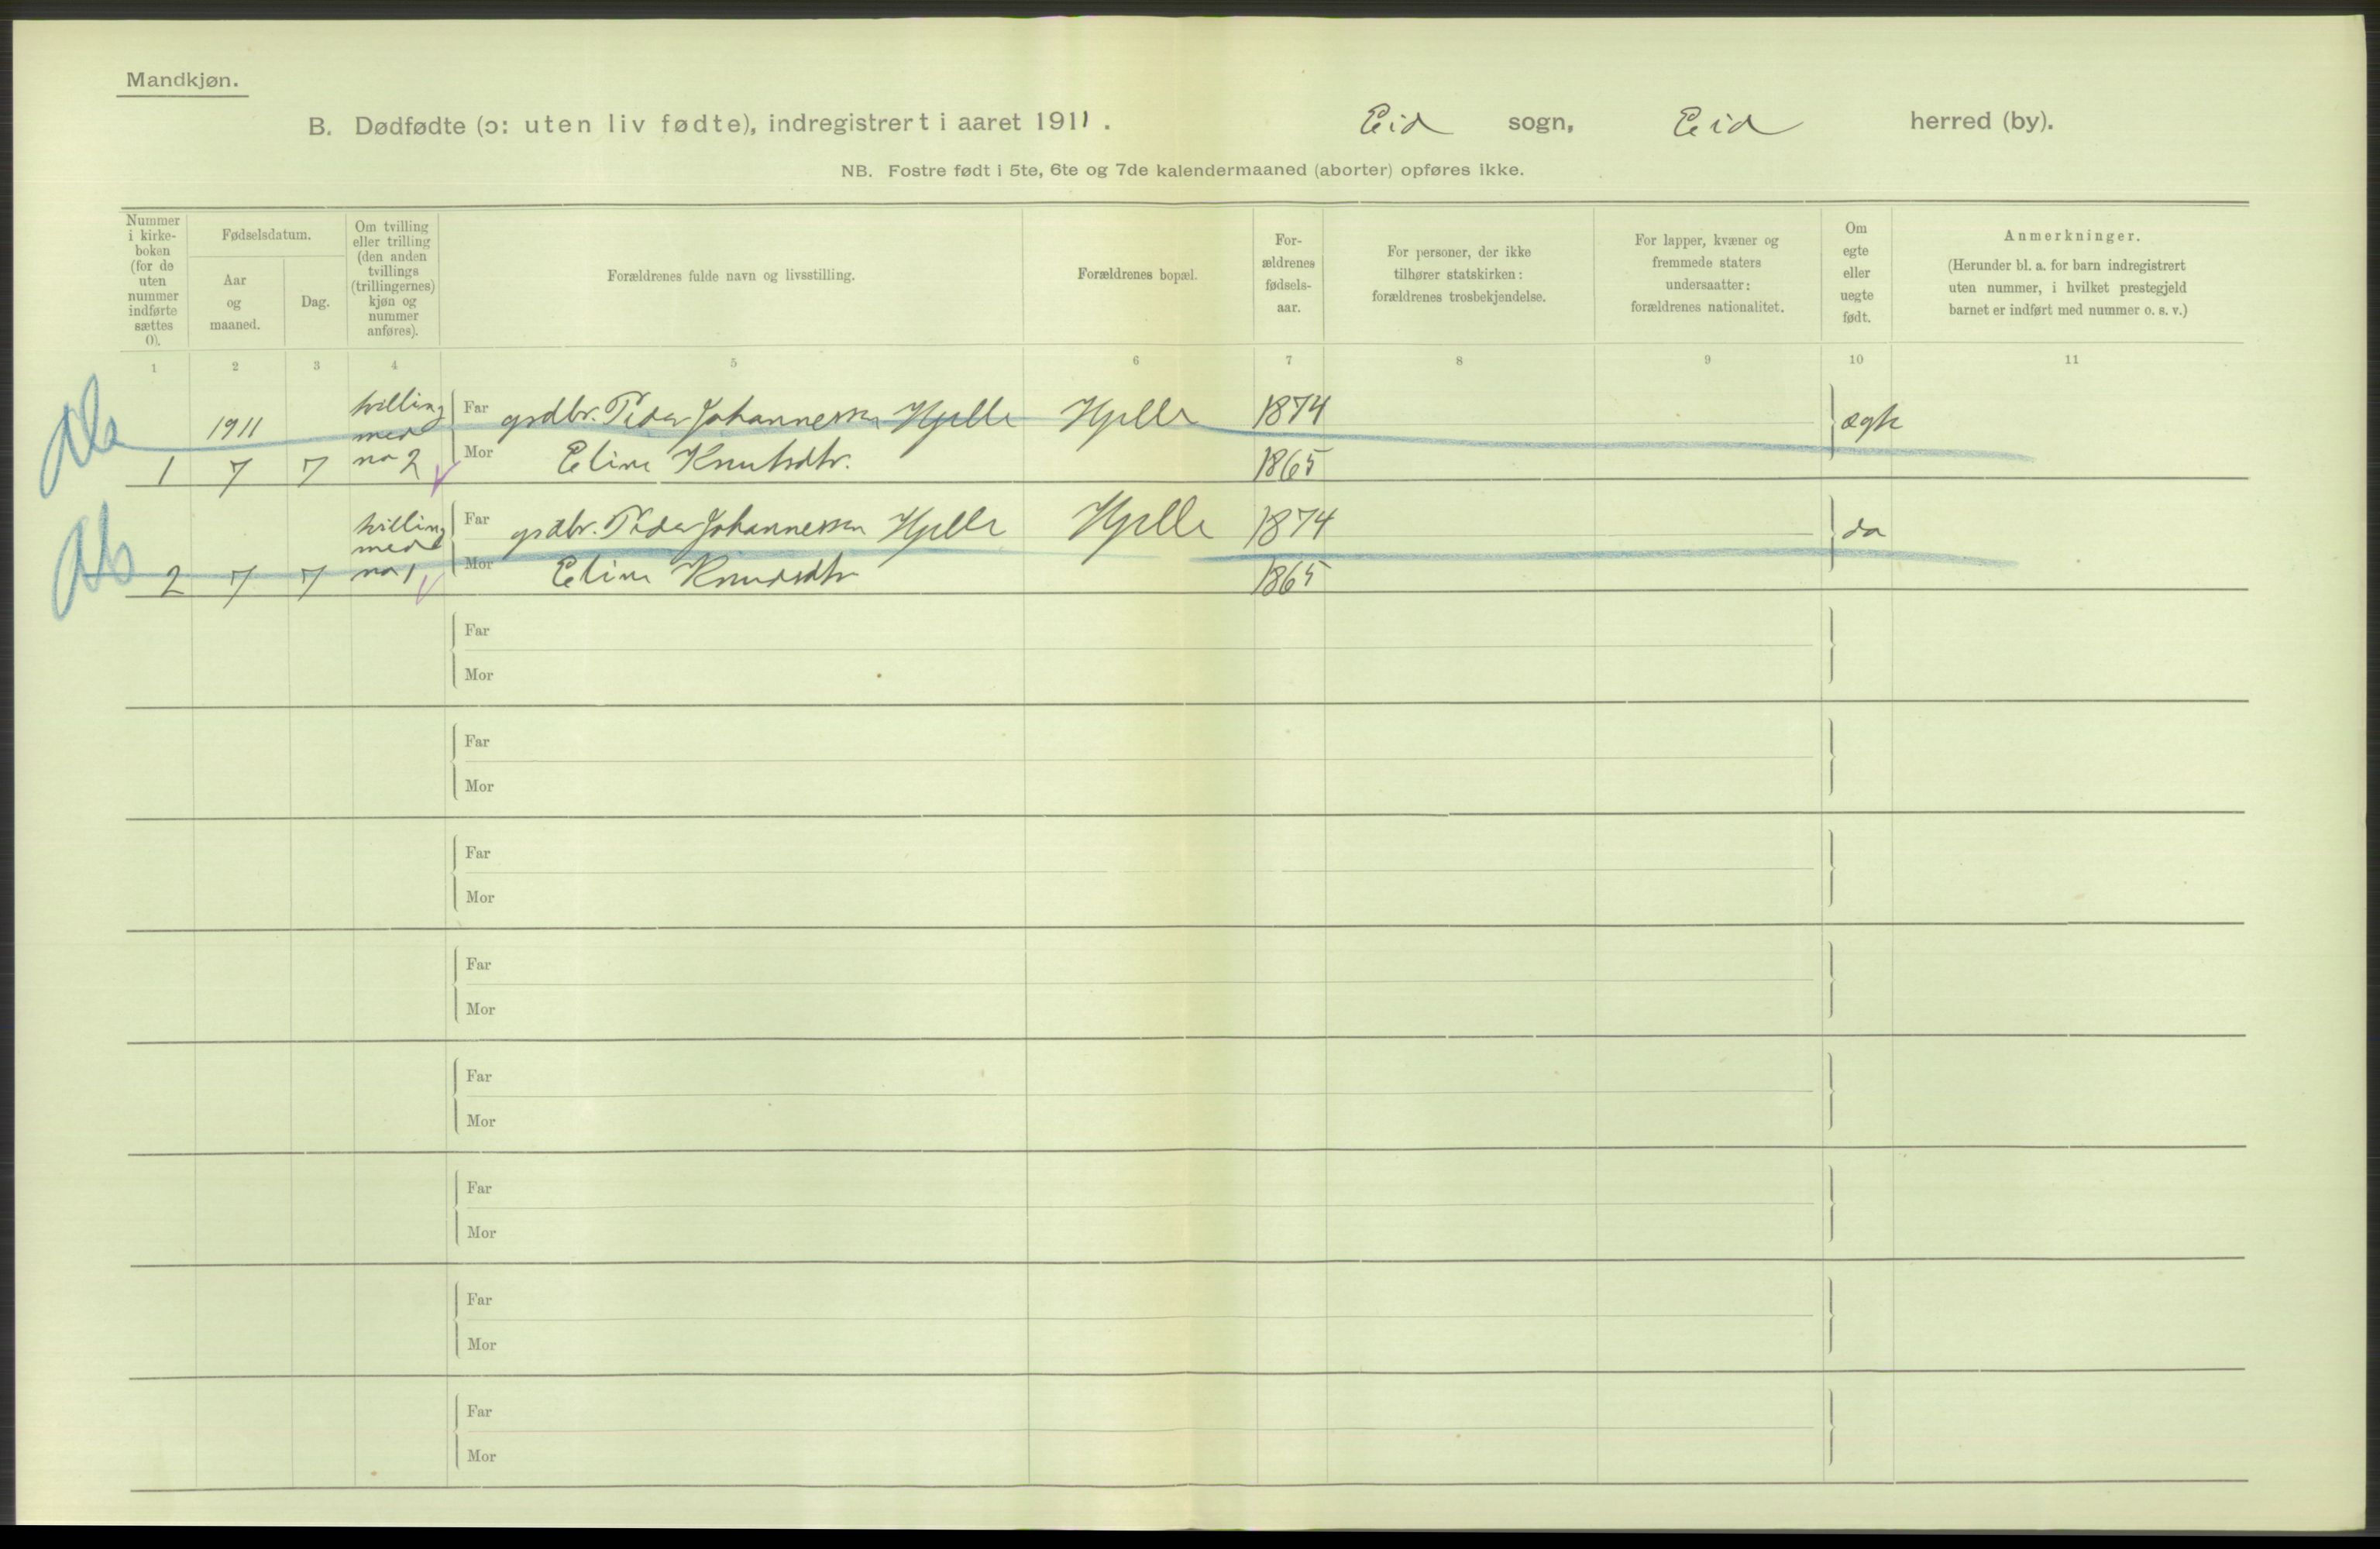 Mandkjøn.
B. Dødfødte (ɔ: uten liv fødte), indregistrert i aaret 1911. Eid sogn, Eid herred (by).
NB. Fostre født i 5te, 6te og 7de kalendermaaned (aborter) opføres ikke.
Nummer i kirke-boken (for de uten nummer indførte sættes 0).
Fødselsdatum.
Aar og maaned.
Dag.
Om tvilling eller trilling (den anden tvillings (trillingernes) kjøn og nummer anføres).
Forældrenes fulde navn og livsstilling.
Forældrenes bopæl.
For-ældrenes fødsels-aar.
For personer, der ikke tilhører statskirken: forældrenes trosbekjendelse.
For lapper, kvæner og fremmede staters undersaatter: forældrenes nationalitet.
Om egte eller uegte født.
Anmerkninger.
(Herunder bl. a. for barn indregistrert uten nummer, i hvilket prestegjeld barnet er indført med nummer o. s. v.)
1 2 3 4 5 6 7 8 9 10 11
1911 tvilling med Far grdbr. Peder Johannessen Hjelle Hjelle 1874 ægte
1 7 7 no 2 Mor Eline Knutsdtr. 1865
tvilling med Far grdbr. Peder Johannessen Hjelle Hjelle 1874 do
2 7 7 no 1 Mor Eline Knudsdtr 1865
Far
Mor
Far
Mor
Far
Mor
Far
Mor
Far
Mor
Far
Mor
Far
Mor
Far
Mor